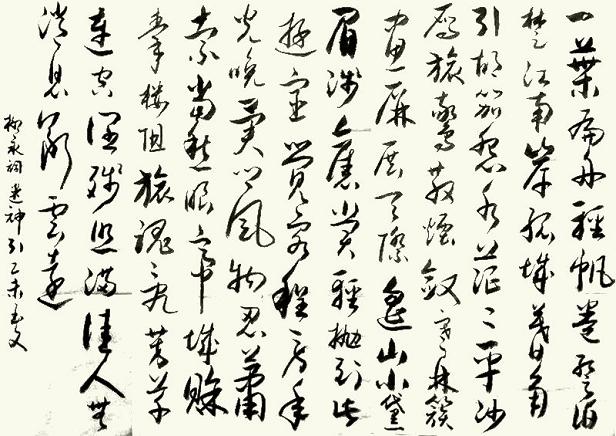 一葉扁舟輕帆卷暫泊
楚江南岸孤城暮角
引胡笳怨水茫〻平沙
雁旋驚散煙斂寒林簇
畫屏展天際遙山小黛
眉淺舊賞輕拋到此
遊宦覺客程勞年
光晚異鄉風物忍蕭
索當愁眼帝城賒
秦樓阻旅魂亂芳草
連空闊殘照滿佳人無
消息斷雲遠
柳永詞迷神引乙未